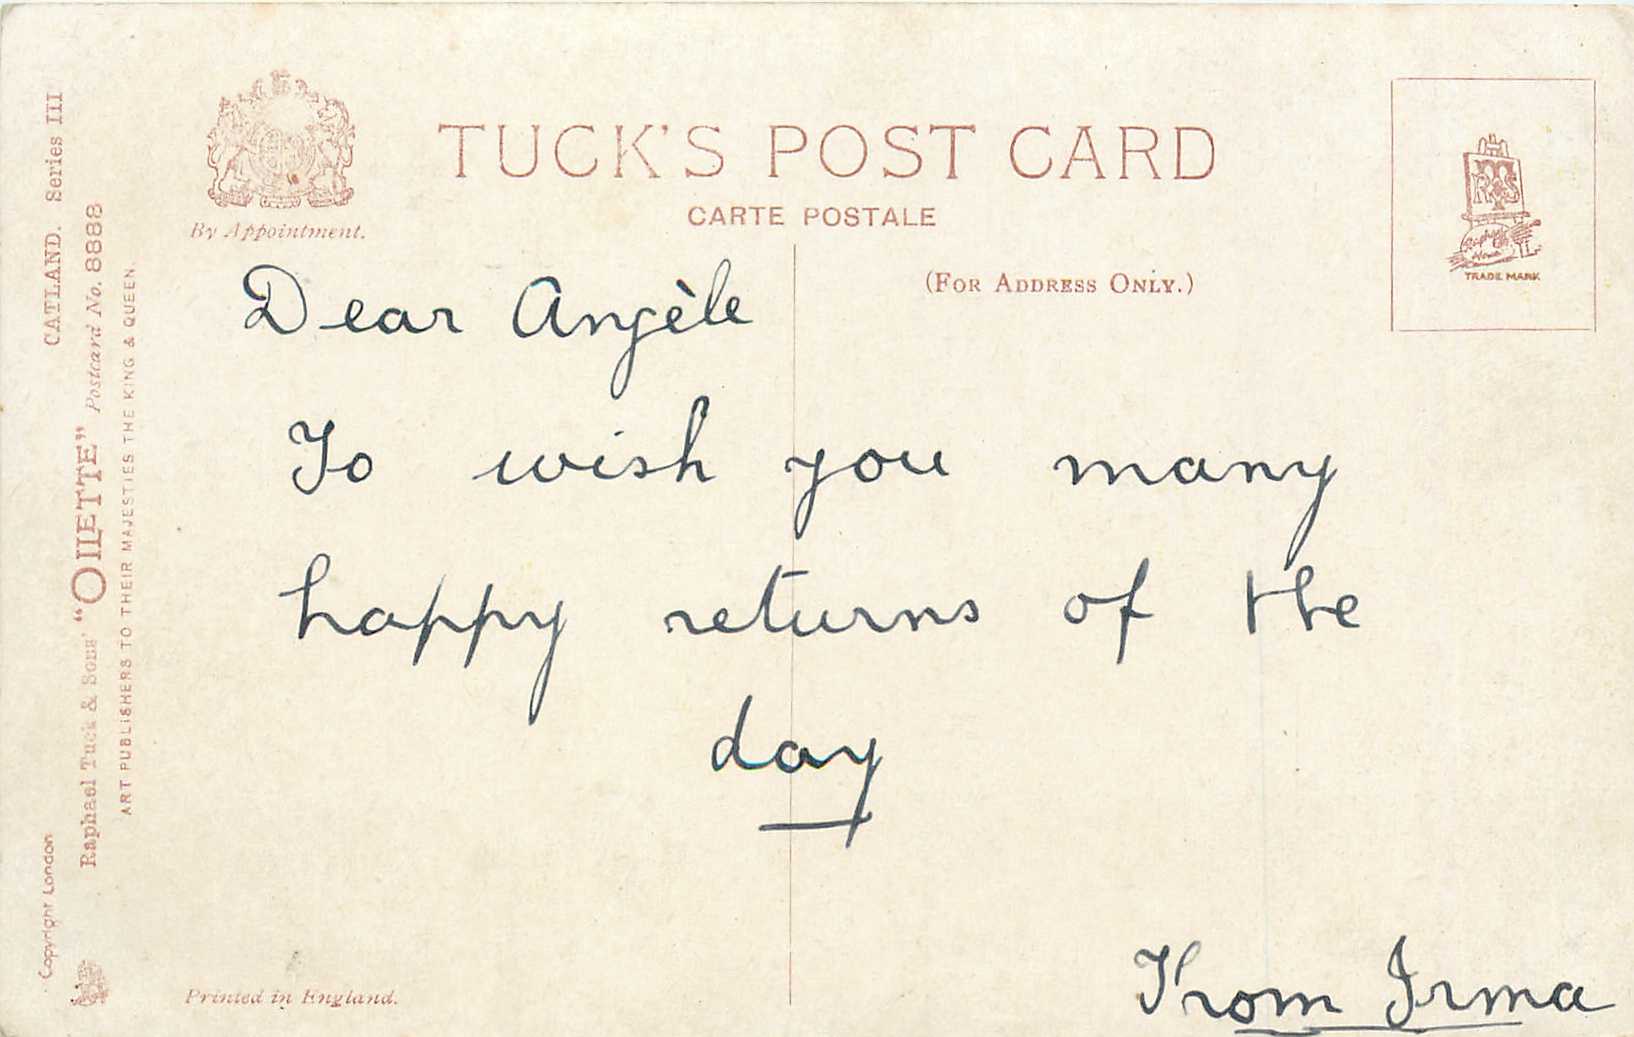 TUCK'S POST CARD
CARTE POSTALE
By Appointment.
(FOR ADDRESS ONLY.)
TRADE MARK
Dear Angèle
To wish you many
happy returns of the
day
From Irma
Printed in England.
Copyright London
CATLAND. Series III
Raphael Tuck & Sons' "OILETTE" Postcard No. 8888
ART PUBLISHERS TO THEIR MAJESTIES THE KING & QUEEN.